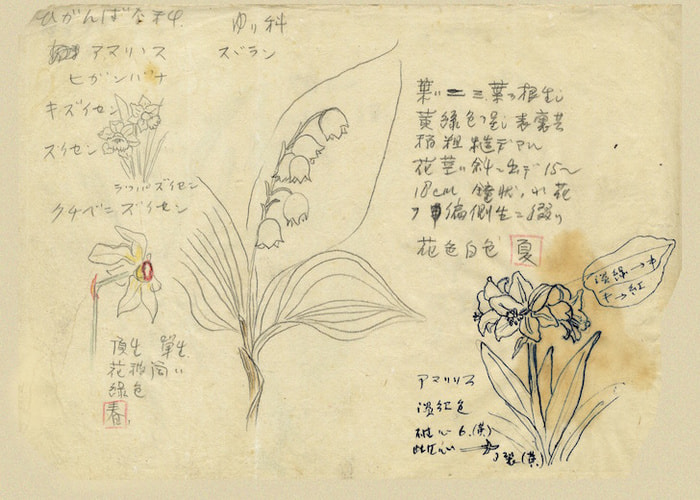 ひがんばな科
アマリリス
ヒガンバナ
キズイセン
スイセン
ラッパズイセン
クチベニズイセン
頂生 単生
花被筒ハ
緑色
春
ゆり科
スズラン
葉ハ二ー三葉ヲ根生シ
黄緑色ヲ呈シ表裏共
稍粗糙デアル
花茎ハ斜ニ出デ15〜
18cm 鐘状ノ花
ヲ偏側生ニ綴リ
花色白色 夏
淡緑→中
中→紅
アマリリス
淡紅色
雄心6.(黄)
雌心
3裂(黄)